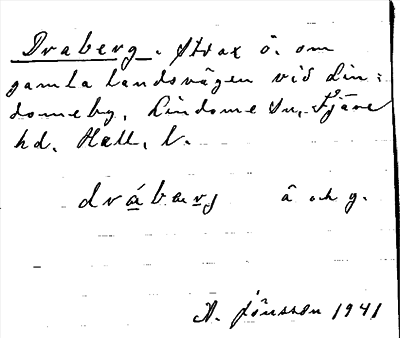 Draberg. Strax ö. om
gamla landsvägen vid Lin-
domeby, Lindome sn, Fjäre
hd. Hall. l.
drábærj â och y.
A. Jönsson 1941